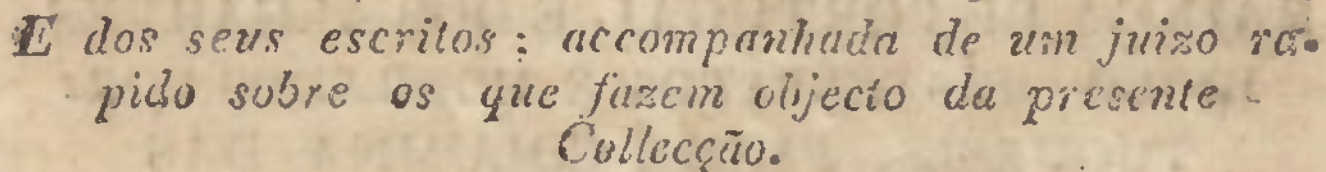 E dos seus escritos; accompanhada de um juizo ra-
pido sobre os que fazem objecto da presente
Collecção.